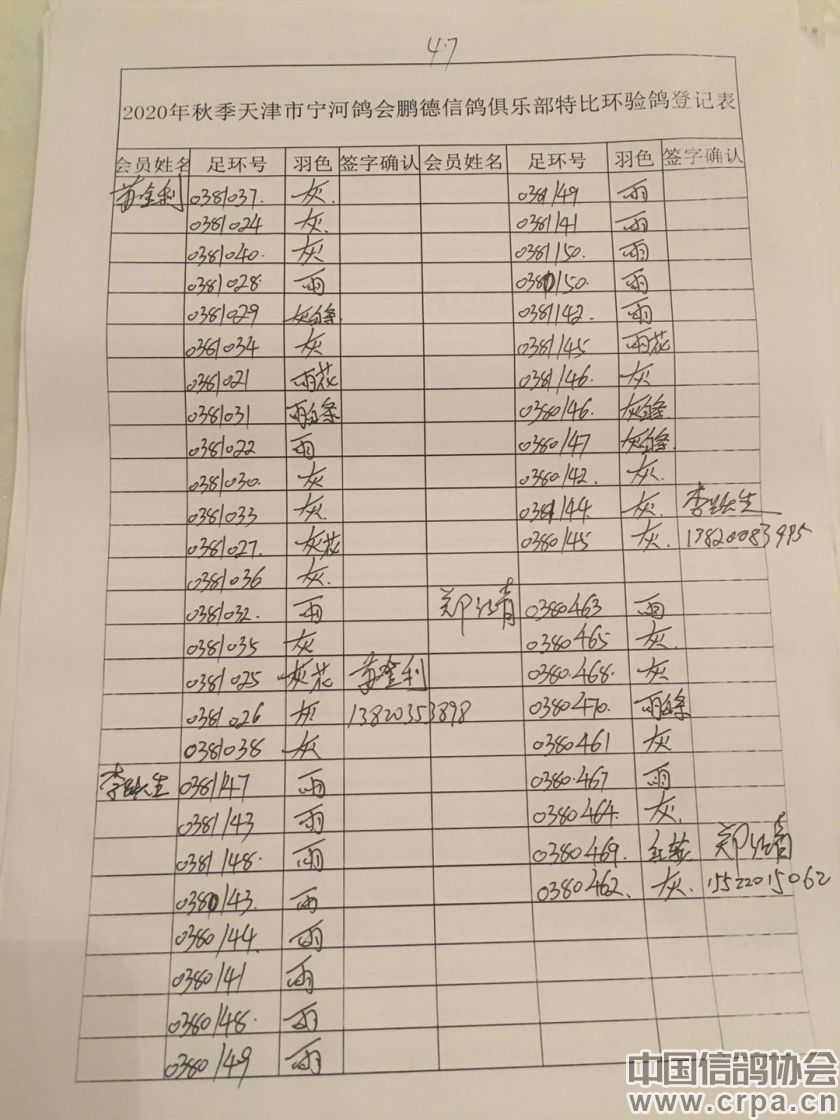 47
2020年秋季天津市宁河鸽会鹏德信鸽俱乐部特比环验鸽登记表
会员姓名 足环号 羽色 签字确认 会员姓名 足环号 羽色 签字确认
苗金利 0381037. 灰 0381149 雨
0381024 灰 0381141 雨
0381040. 灰 0381150. 雨
0381028. 雨 0380150. 雨
0381029 灰白条 0381142. 雨
0381034 灰 0381145 雨花
0381021 雨花 0381146. 灰
0381031 雨白条 0380146. 灰白条
0381022 雨 0380147 灰白条
0381030. 灰 0380142. 灰
0381033 灰 0381144 灰. 李生
0381027. 灰花 0380145 灰. 13820083995
0381036 灰.
0381032. 雨 郑红青 0380463 雨
0381035 灰 0380465 灰
0381025 灰花 苗金利 0380468. 灰
0381026 灰 13820353898 0380470. 雨白条
0381038 灰 0380461 灰
李生 0381147 雨 0380467 雨
0381143 雨 0380464. 灰.
0381148. 雨 0380469. 郑红青
0380143. 雨 0380462. 灰. 15522015062
0380144. 雨
0380141 雨
0380148. 雨
0380149 雨
中国信鸽协会
www.crpa.cn